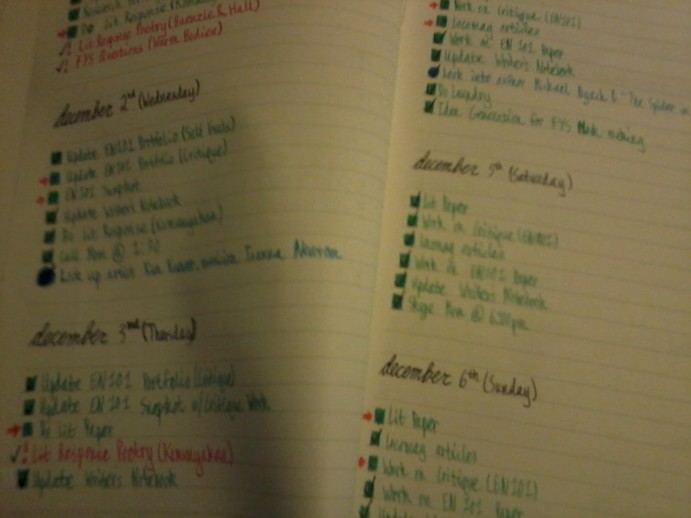 Do Lit Response
Lit Response Poetry (Kuenzle & Hall)
FYS Questions
december 2nd (Wednesday)
Update EN101 Portfolio (Self Evals)
Update EN101 Portfolio (Critique)
EN101 Snapshot
Update Writer's Notebook
Do Lit Response (Komunyakaa)
Call Mom @ 1:30
Look up artist musician Joanna Newsom
december 3rd (Thursday)
Update EN101 Portfolio (Critique)
Update EN 101 Snapshot w/ Critique Work
Do Lit Paper
Lit Response Poetry (Komunyakaa)
Update Writer's Notebook
Work on Critique (EN101)
Incomag articles
Work on EN 101 Paper
Update Writer's Notebook
Look into & "The Spider
Do Laundry
Idea Generation for FYS Mask making
december 5th (Saturday)
Lit Paper
Work on Critique (EN101)
Incomag articles
Work on EN101 Paper
Update Writer's Notebook
Skype @ 6:00pm
december 6th (Sunday)
Lit Paper
Incomag articles
Work on Critique (EN101)
Work on EN 101 Paper
Update